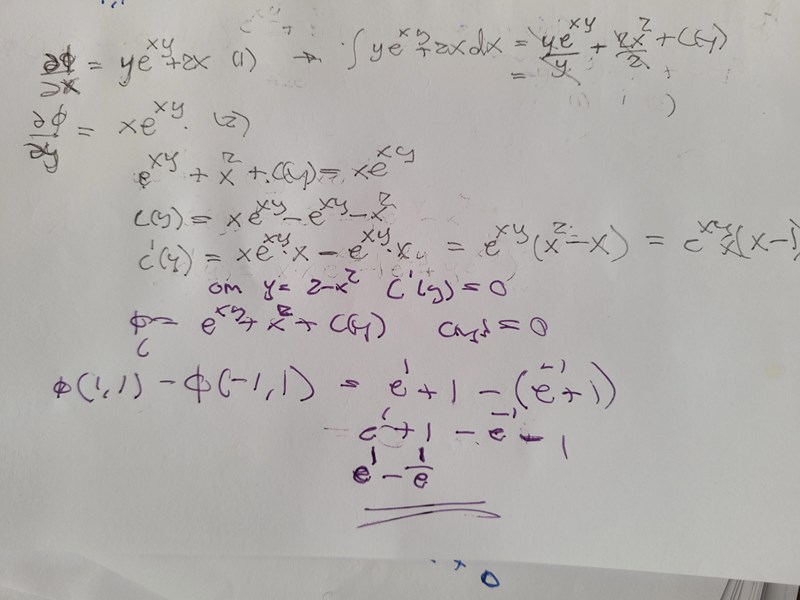 ∂φ/∂x = ye^xy + 2x (1) → ∫ ye^xy + 2x dx = ye^xy/y + 2x²/2 + C(y)
=
∂φ/∂y = xe^xy. (2)
e^xy + x² + C(y) = xe^xy
C(y) = xe^xy - e^xy - x²
C'(y) = xe^xy · x - e^xy · x = e^xy(x² - x) = e^xy x(x-1)
om y = 2-x² C'(y) = 0
φ = e^xy + x² + C(y) C(y) = 0
φ(1,1) - φ(-1,1) = e¹ + 1 - (e⁻¹ + 1)
e¹ + 1 - e⁻¹ - 1
e¹ - 1/e